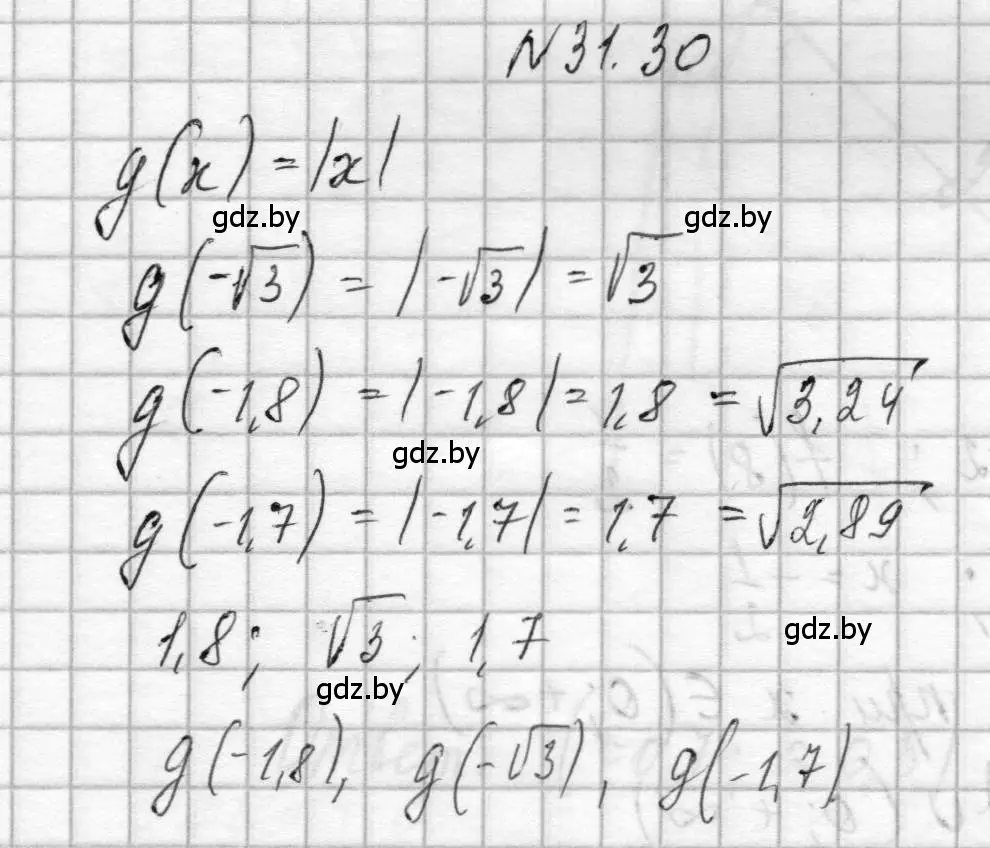 N 31.30
g(x) = |x|
gdz.by gdz.by
g(-√3) = |-√3| = √3
g(-1,8) = |-1,8| = 1,8 = √3,24
gdz.by
g(-1,7) = |-1,7| = 1,7 = √2,89
1,8; √3; 1,7
gdz.by
gdz.by
g(-1,8), g(-√3), g(-1,7)